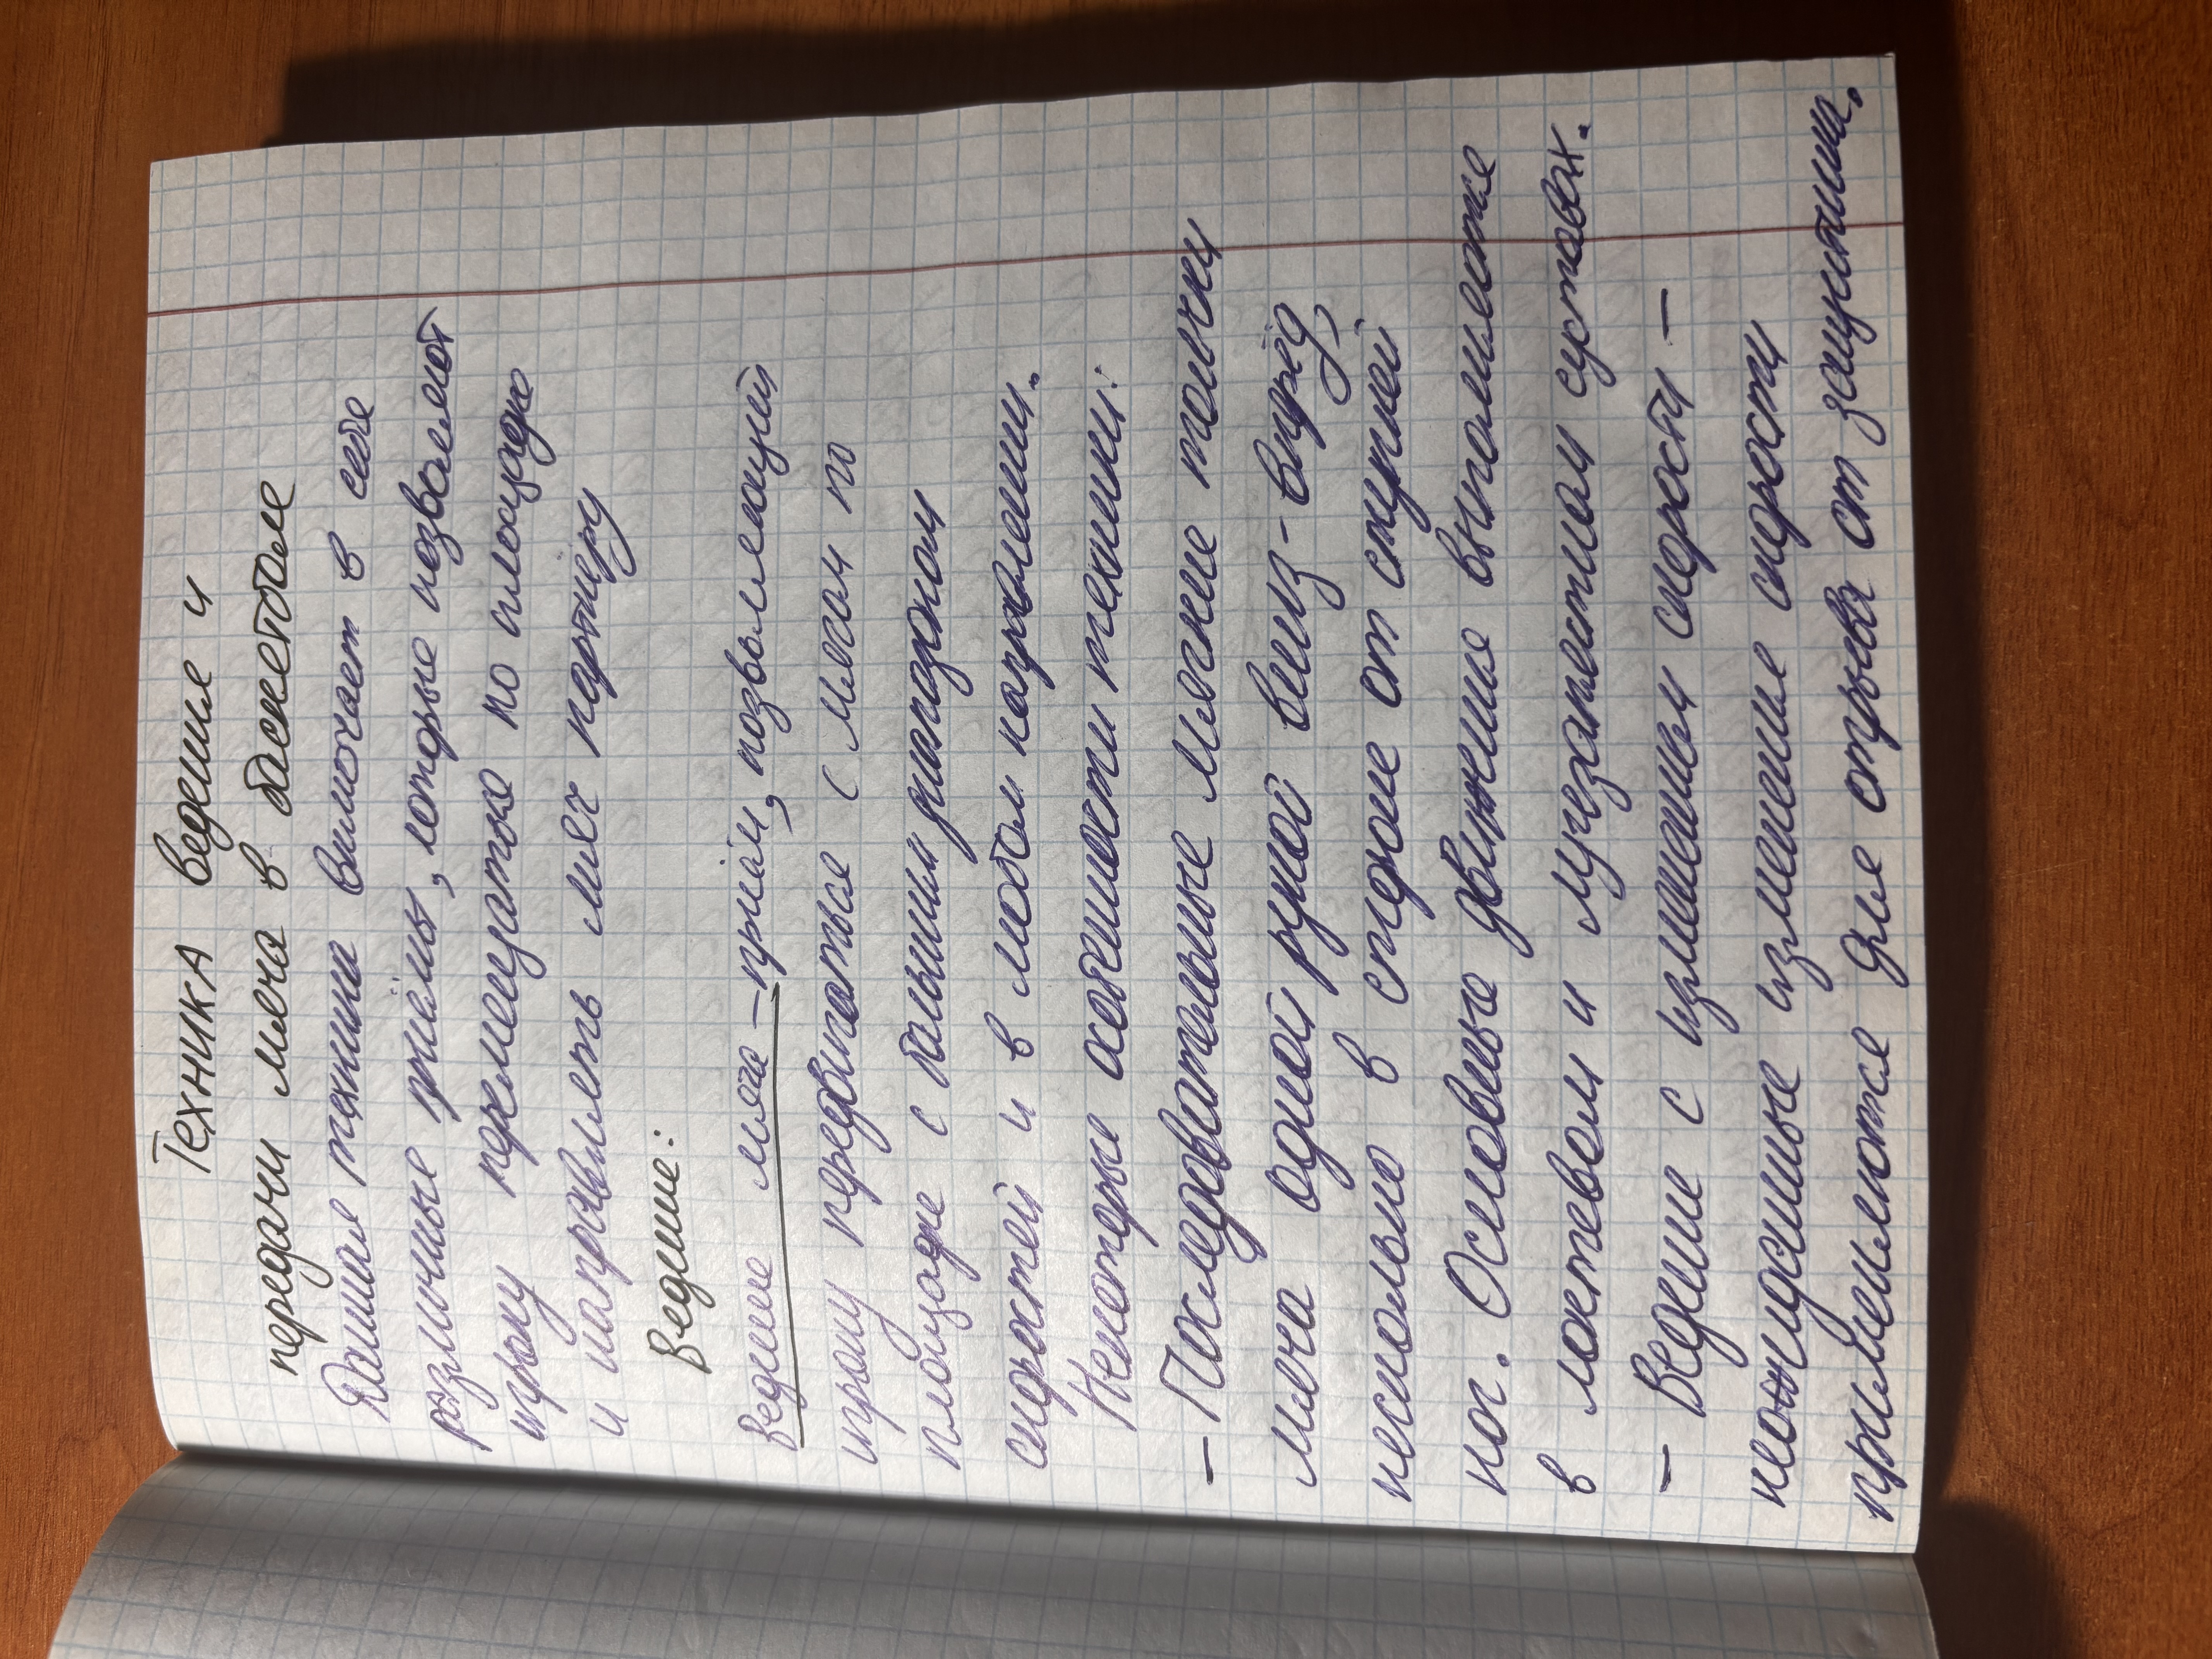 Техника ведения и
передачи мяча в баскетболе
Данная техника включает в себя
различные приёмы, которые позволяют
игроку перемещаться по площадке
и направлять мяч партнёру
Ведение:
Ведение мяча – приём, позволяющий
игроку передвигаться с мячом по
площадке с большим диапазоном
скоростей и в любом направлении.
Некоторые особенности техники:
– Последовательные мягкие толчки
мяча одной рукой вниз-вперёд
несколько в стороне от ступней
ног. Основные движения выполняете
в локтевом и лучезапястном суставах.
– Ведение с изменением скорости –
неожиданные изменение скорости
применяются для отрыва от защитника.